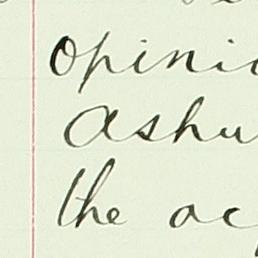 opini
ashu
the ac